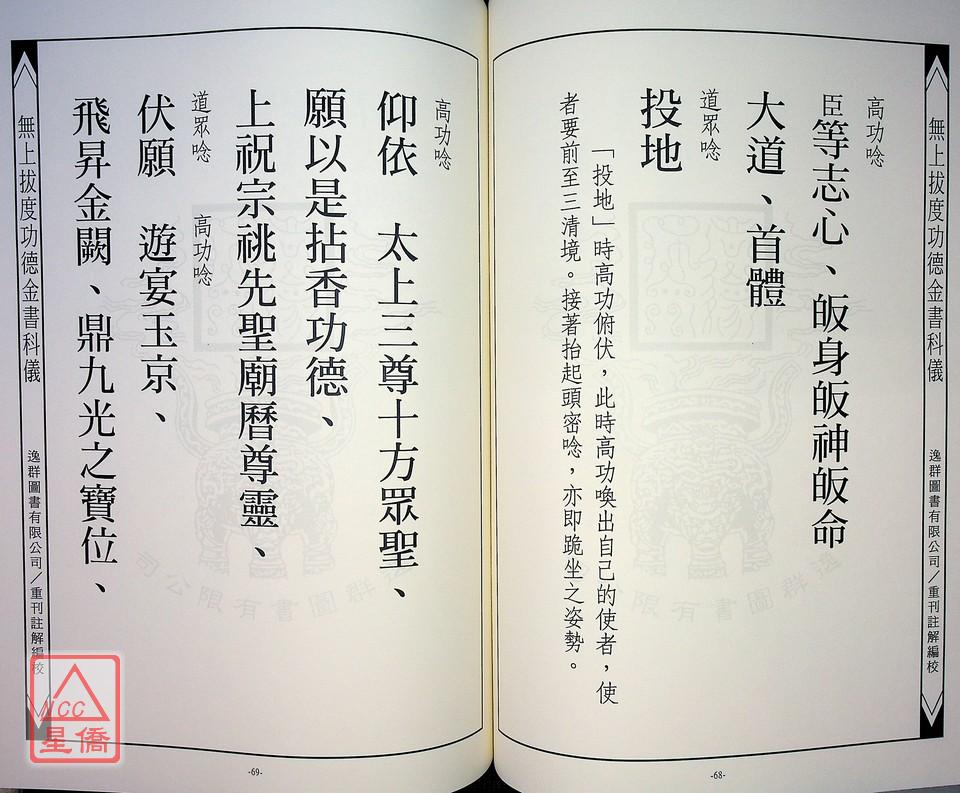 無上拔度功德金書科儀
逸群圖書有限公司/重刊註解編校
高功唸
臣等志心、皈身皈神皈命
大道、首體
道眾唸
投地
「投地」時高功俯伏，此時高功喚出自己的使者，使
者要前至三清境。接著抬起頭密唸，亦即跪坐之姿勢。
-68-
高功唸
仰依　太上三尊十方眾聖、
願以是拈香功德、
上祝宗祧先聖廟曆尊靈、
道眾唸　高功唸
伏願　遊宴玉京、
飛昇金闕、鼎九光之寶位、
無上拔度功德金書科儀
逸群圖書有限公司/重刊註解編校
-69-
逸群圖書有限公司
NCC
星僑